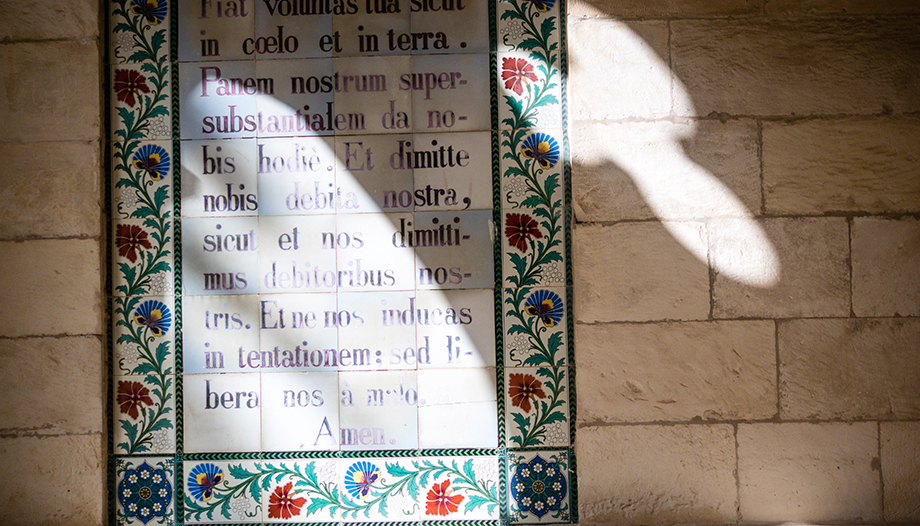 Fiat voluntas tua sicut
in cœlo et in terra.
Panem nostrum super-
substantialem da no-
bis hodiè. Et dimitte
nobis debita nostra,
sicut et nos dimitti-
mus debitoribus nos-
tris. Et ne nos inducas
in tentationem: sed li-
bera nos à malo.
Amen.